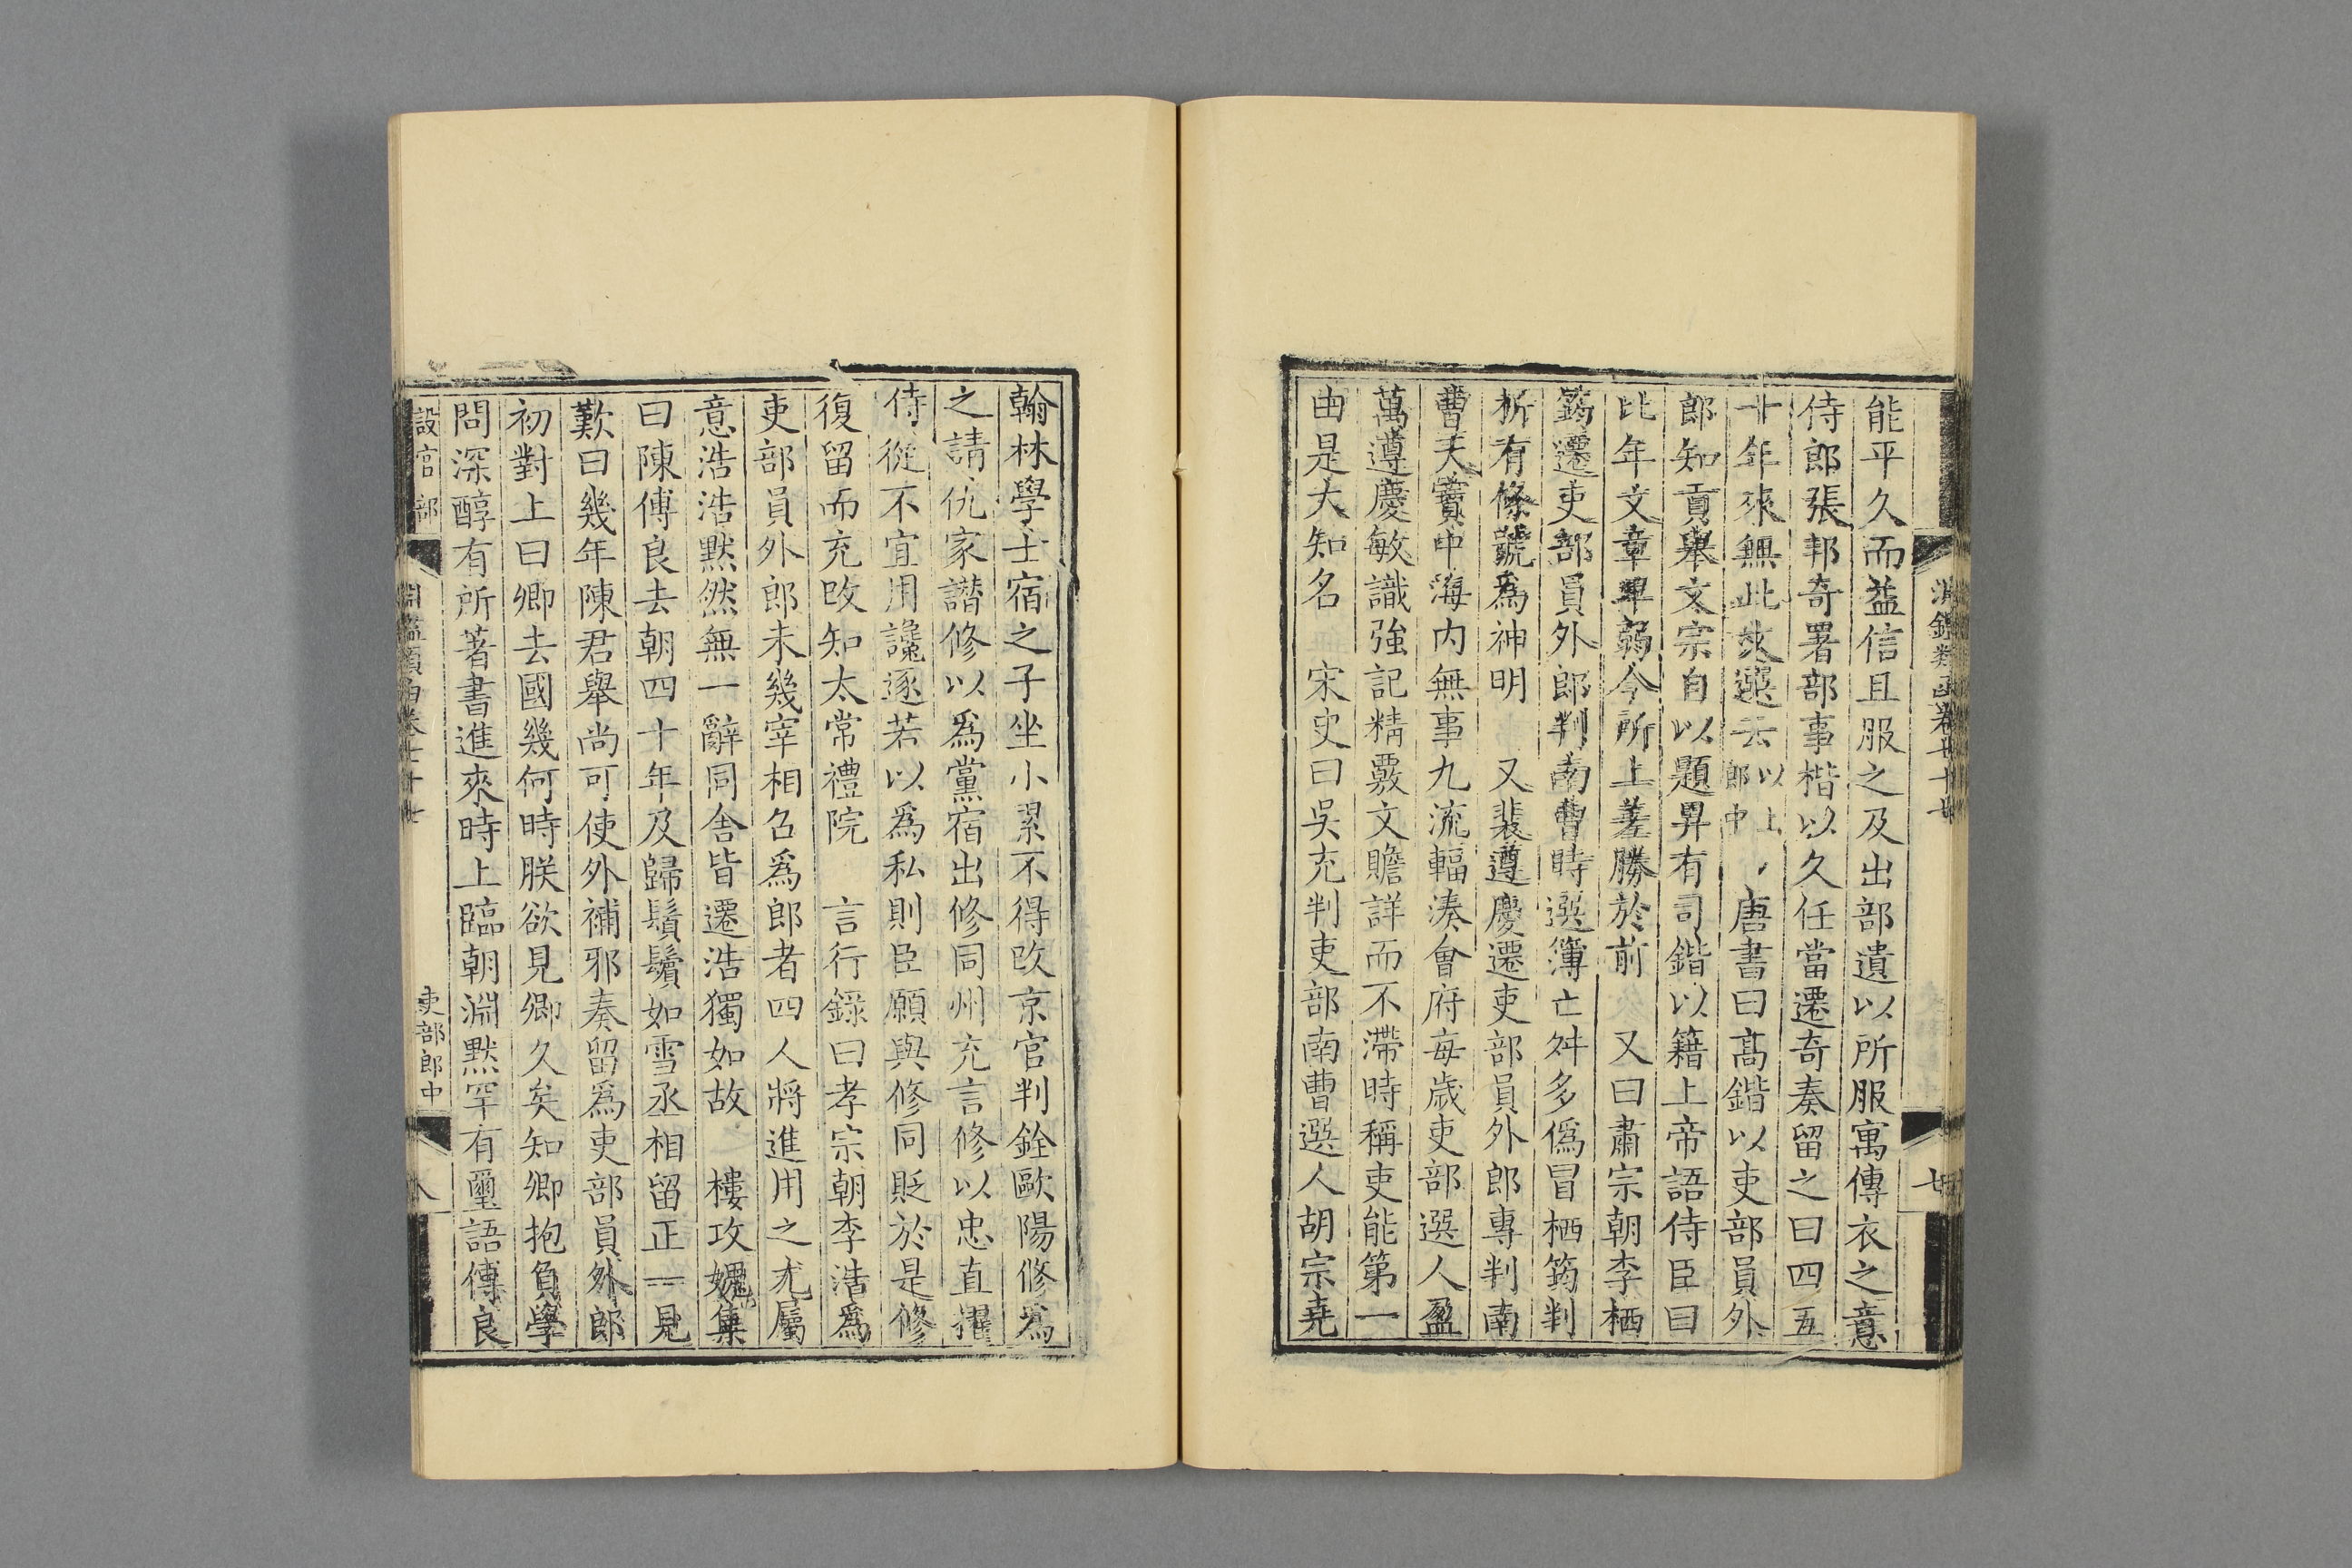 能平久而益信且服之及出部遺以所服寓傳衣之意
侍郎張邦奇署部事楷以久任當遷奇奏留之曰四五
十年來無此文選云以上郎中 唐書曰高鍇以吏部員外
郎知貢舉文宗自以題畀有司鍇以籍上帝語侍臣曰
比年文章卑弱今所上差勝於前 又曰肅宗朝李栖
筠遷吏部員外郎判南曹時選簿亡舛多僞冒栖筠判
析有條號爲神明 又裴遵慶遷吏部員外郎專判南
曹天寶中海内無事九流輻湊會府每歲吏部選人盈
萬遵慶敏識強記精覈文贍詳而不滯時稱吏能第一
由是大知名 宋史曰吳充判吏部南曹選人胡宗堯
翰林學士宿之子坐小累不得改京官判銓歐陽修爲
之請仇家譖修以爲黨宿出修同州充言修以忠直擢
侍從不宜用讒逐若以爲私則臣願與修同貶於是修
復留而充改知太常禮院 言行錄曰孝宗朝李浩爲
吏部員外郎未幾宰相召爲郎者四人將進用之尤屬
意浩浩默然無一辭同舍皆遷浩獨如故 樓攻媿集
曰陳傅良去朝四十年及歸鬚鬢如雪丞相留正一見
歎曰幾年陳君舉尚可使外補邪奏留爲吏部員外郎
初對上曰卿去國幾何時朕欲見卿久矣知卿抱負學
問深醇有所著書進來時上臨朝淵默罕有璽語傅良
設官部
吏部郎中
八